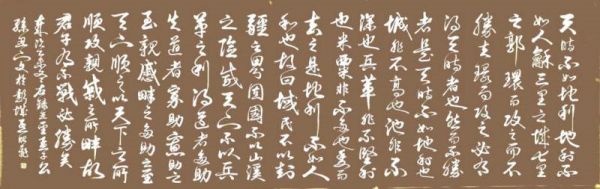 天時不如地利地利不
如人龢三里之城七里
之郭環而攻之而不
勝夫環而攻之必有
得天時者也然而不勝
者是天時不如地利也
城非不高也池非不
深也兵革非不堅利
也米粟非不多也委而
去之是地利不如人
和也故曰域民不以封
疆之界固國不以山溪
之險威天下不以兵
革之利得道者多助
失道者寡助寡助之
至親戚畔之多助之至
天下順之以天下之所
順攻親戚之所畔故
君子有不戰必勝矣
右錄亞聖孟子